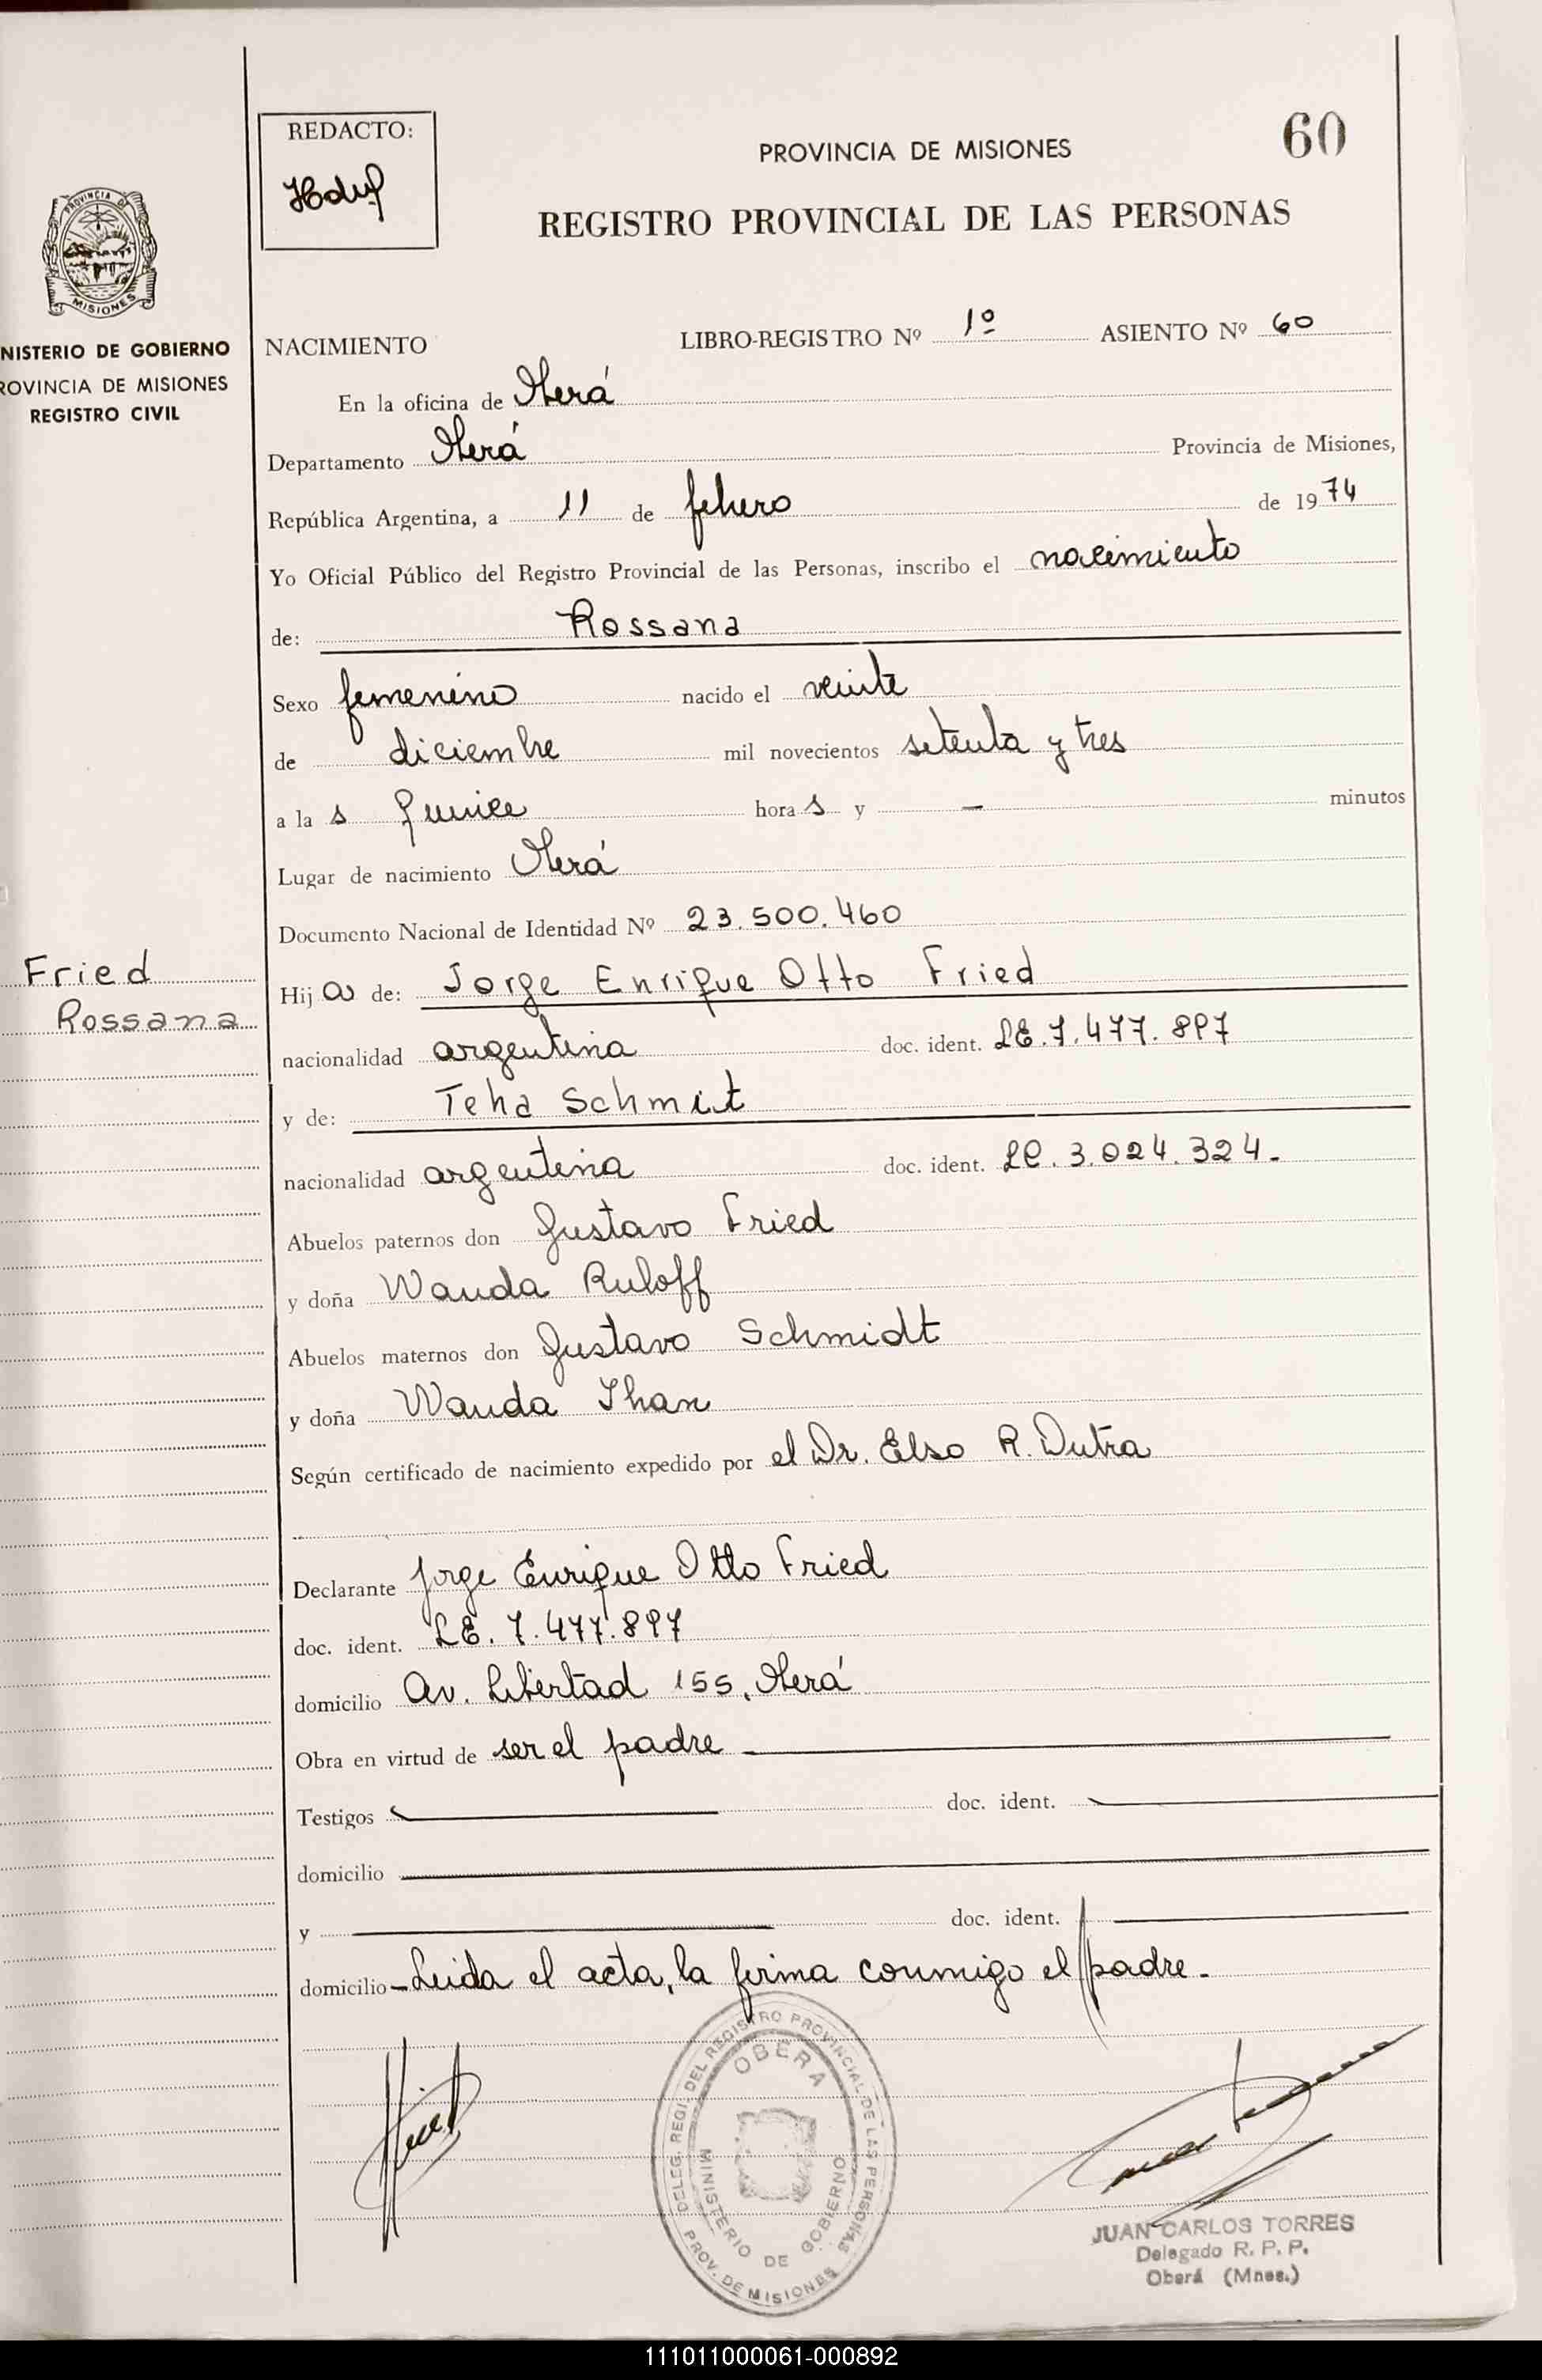 REDACTO:
60
PROVINCIA DE MISIONES
REGISTRO PROVINCIAL DE LAS PERSONAS
PROVINCIA DE
MISIONES
NISTERIO DE GOBIERNO
ROVINCIA DE MISIONES
REGISTRO CIVIL
NACIMIENTO LIBRO-REGISTRO Nº 1º ASIENTO Nº 60
En la oficina de Oberá
Departamento Oberá Provincia de Misiones,
República Argentina, a 11 de febrero de 1974
Yo Oficial Público del Registro Provincial de las Personas, inscribo el nacimiento
de: Rossana
Sexo femenino nacido el veinte
de diciembre mil novecientos setenta y tres
a la s quince hora s y — minutos
Lugar de nacimiento Oberá
Documento Nacional de Identidad Nº 23.500.460
Fried
Rossana
Hij a de: Jorge Enrique Otto Fried
nacionalidad argentina doc. ident. LE. 7.477.897
y de: Teha Schmit
nacionalidad argentina doc. ident. LC. 3.024.324.
Abuelos paternos don Gustavo Fried
y doña Wanda Ruloff
Abuelos maternos don Gustavo Schmidt
y doña Wanda Than
Según certificado de nacimiento expedido por el Dr. Elso R. Dutra
Declarante Jorge Enrique Otto Fried
doc. ident. LE. 7.477.897
domicilio Av. Libertad 155, Oberá
Obra en virtud de ser el padre
Testigos doc. ident.
domicilio
y doc. ident.
domicilio - Leida el acta, la firma conmigo el padre.-
DELEG. REGI. DEL REGISTRO PROVINCIAL DE LAS PERSONAS
OBERA
MINISTERIO DE GOBIERNO
PROV. DE MISIONES
JUAN CARLOS TORRES
Delegado R. P. P.
Oberá (Mnes.)
111011000061-000892